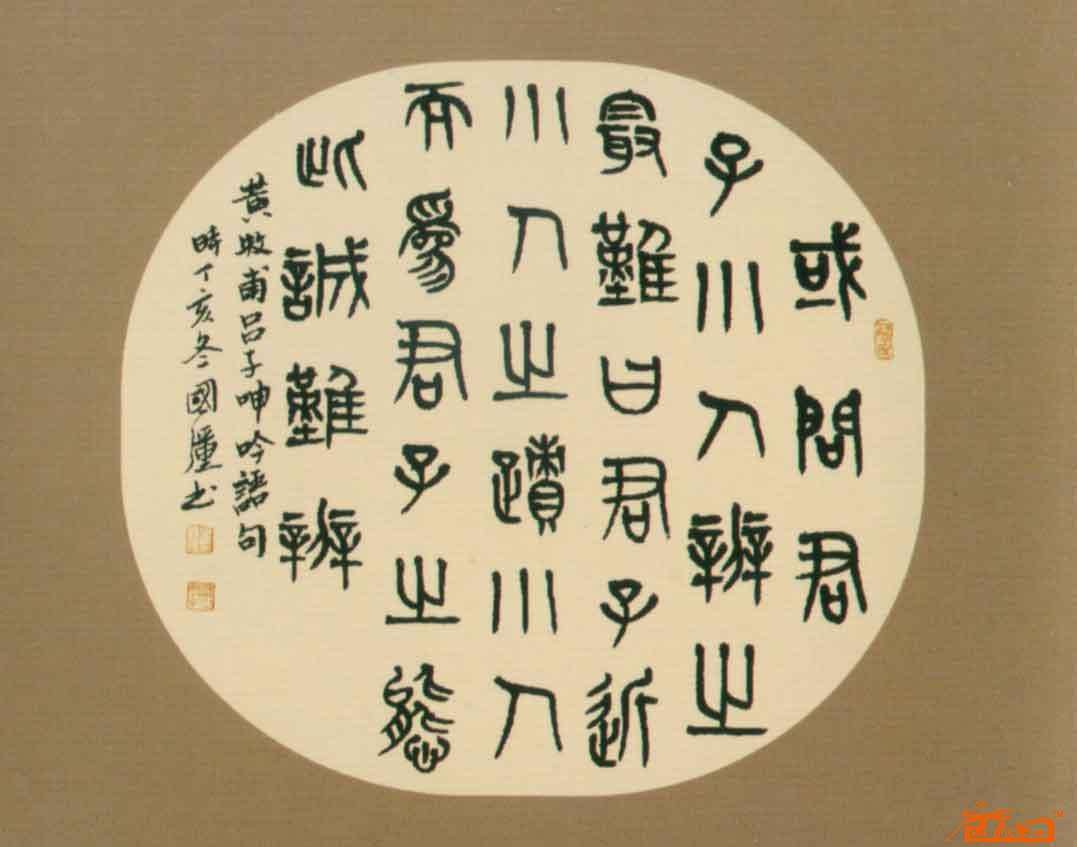 或問君
子小人辨之
最難曰君子近
小人之蹟小人
而為君子之態
此誠難辨
黃牧甫呂子呻吟語句
時丁亥冬國書